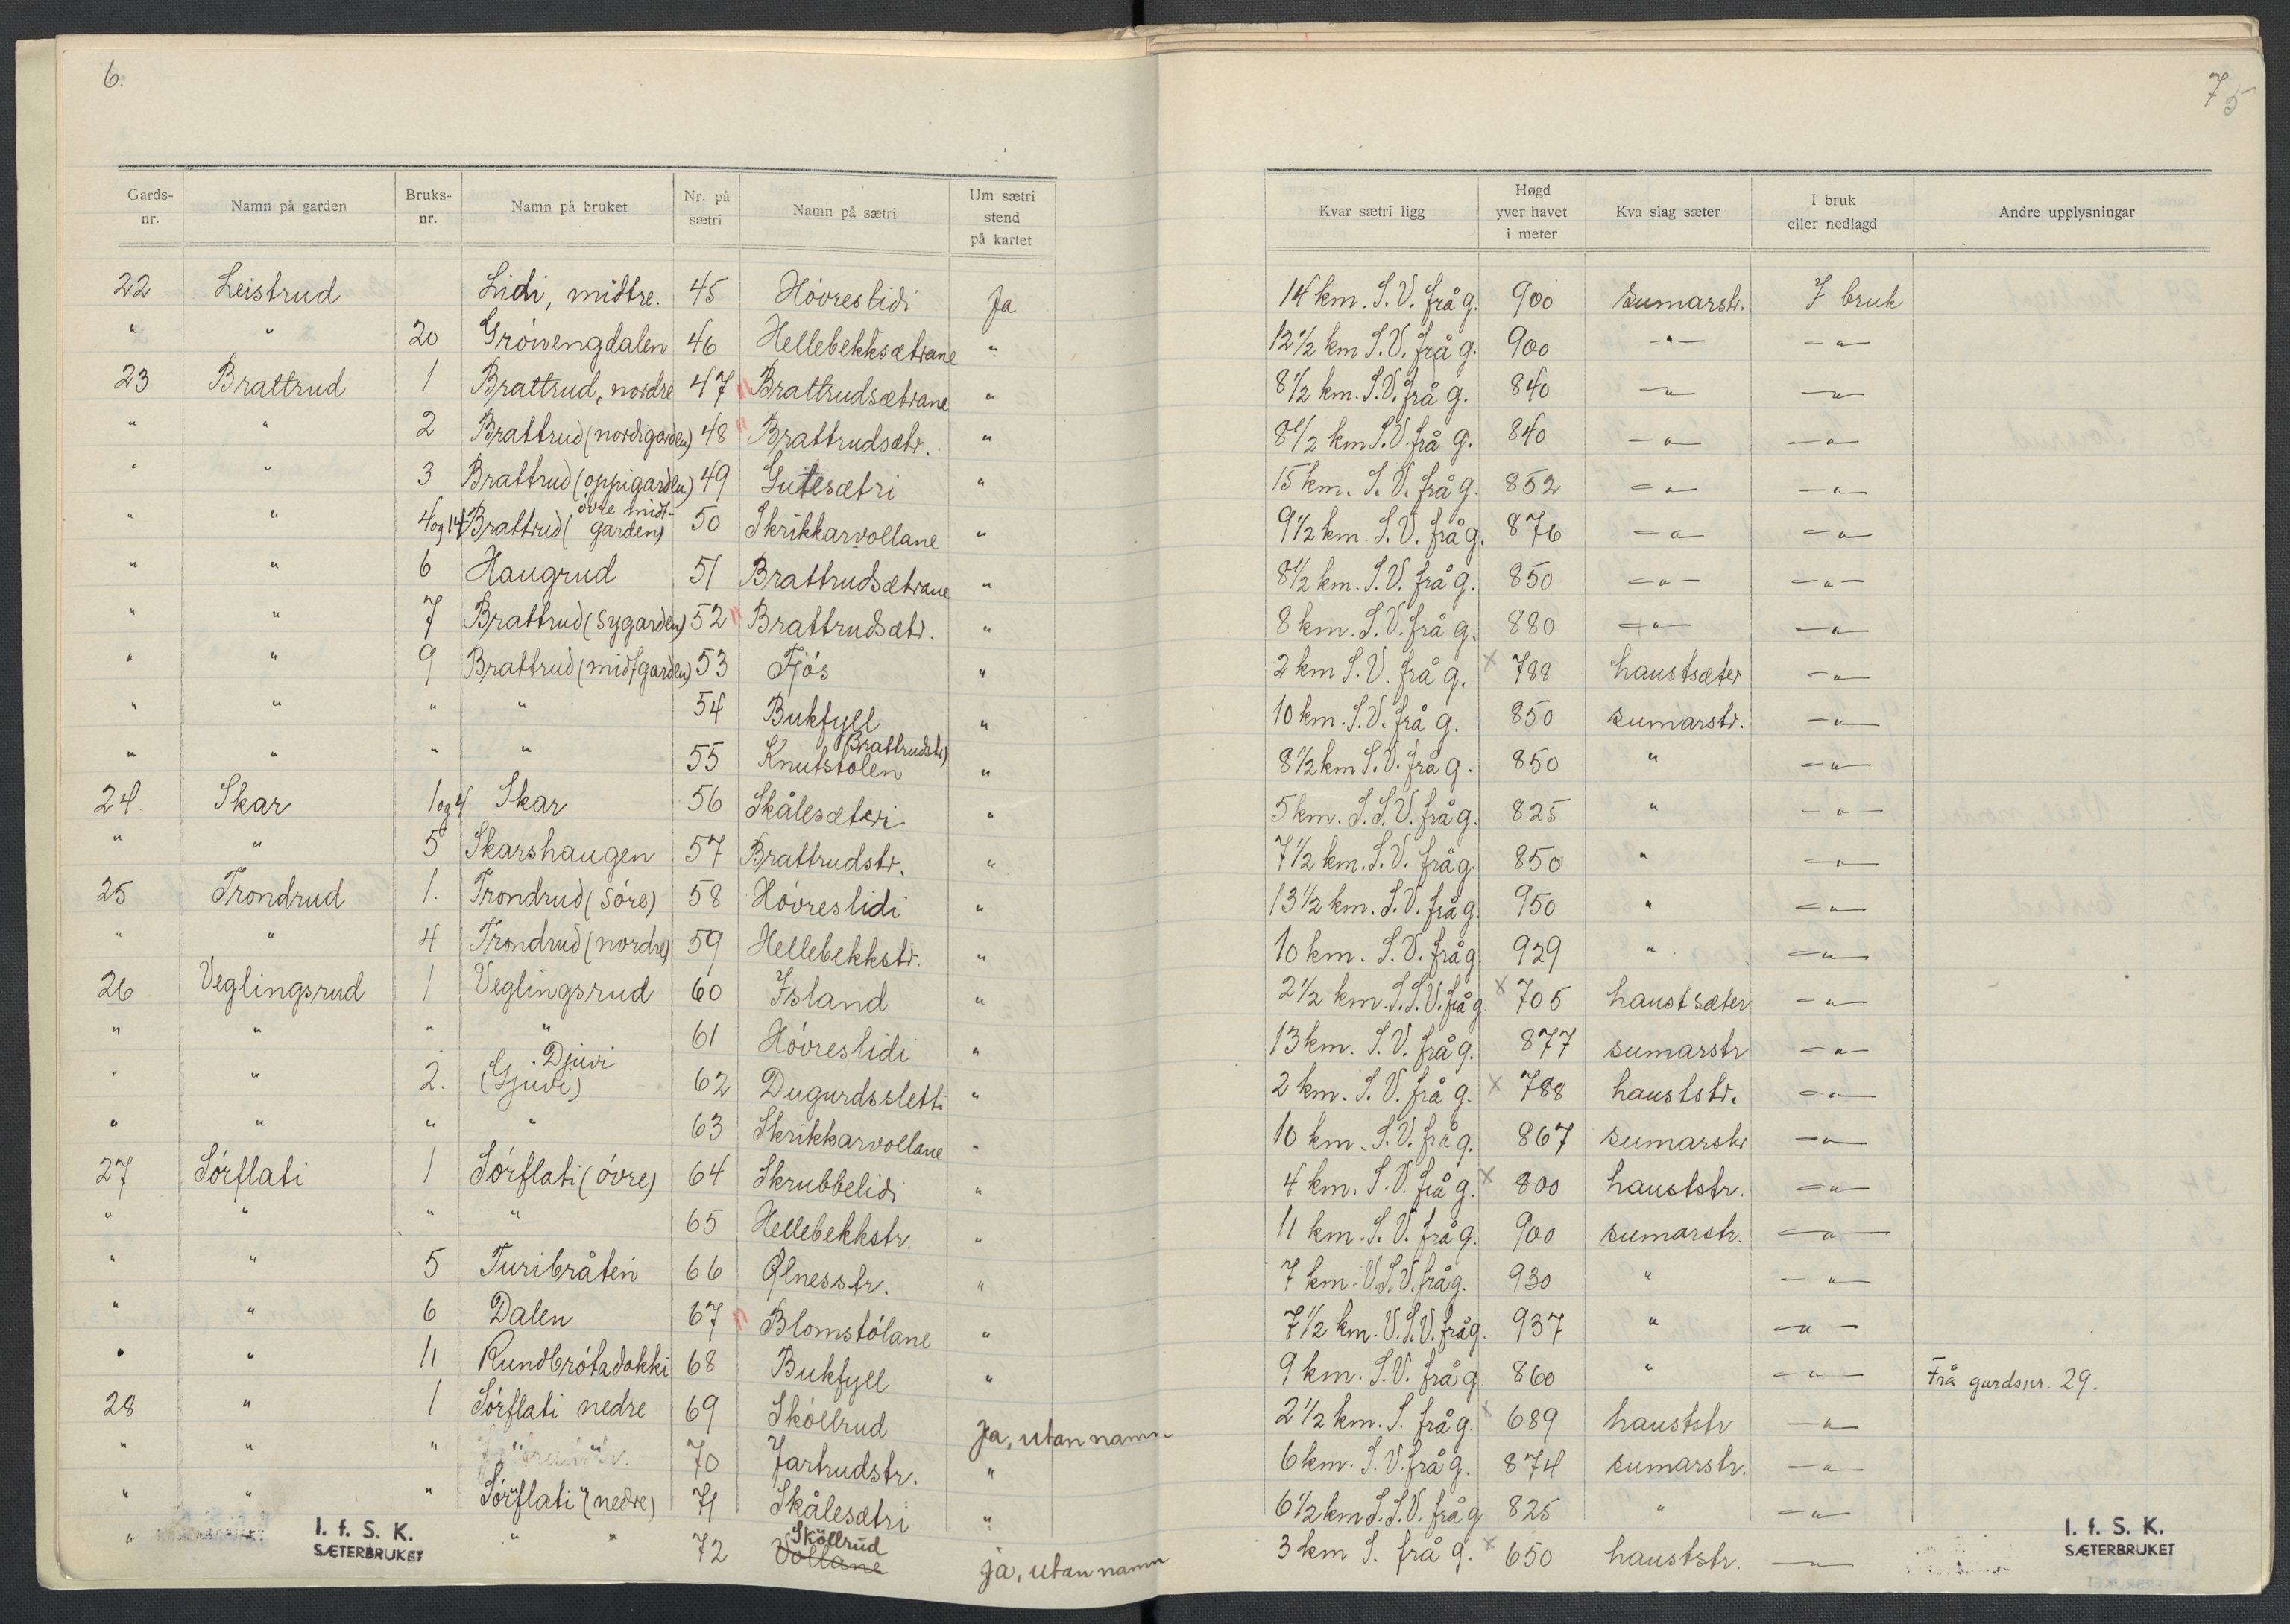 6.
75
Gards-nr. | Namn på garden | Bruks-nr. | Namn på bruket | Nr. på sætri | Namn på sætri | Um sætri stend på kartet | Kvar sætri ligg | Høgd yver havet i meter | Kva slag sæter | I bruk eller nedlagd | Andre upplysningar
22 | Leistrud | | Lidi, midtre. | 45 | Hóvreslidi | Ja | 14 km. S.V. frå g. | 900 | sumarstr. | I bruk
" | " | 20 | Gróvengdalen | 46 | Hellebekksætrane | " | 12 1/2 km S.V. frå g. | 900 | -"- | -"-
23 | Brattrud | 1 | Brattrud, nordre | 47 | Brattrudsætrane | " | 8 1/2 km. S.V. frå g. | 840 | -"- | -"-
" | " | 2 | Brattrud (nordigarden) | 48 | Brattrudsætr. | " | 8 1/2 km S.V. frå g. | 840 | -"- | -"-
" | " | 3 | Brattrud (oppigarden) | 49 | Gutesætri | " | 15 km. S.V. frå g. | 852 | -"- | -"-
" | " | 4 og 14 | Brattrud (óvre midt-garden) | 50 | Skrikkarvollane | " | 9 1/2 km. S.V. frå g. | 876 | -"- | -"-
" | " | 6 | Haugrud | 51 | Brattrudsætrane | " | 8 1/2 km. S.V. frå g. | 850 | -"- | -"-
" | " | 7 | Brattrud (Sygarden) | 52 | Brattrudsætr. | " | 8 km. S.V. frå g. | 880 | -"- | -"-
" | " | 9 | Brattrud (midtgarden) | 53 | Fjós | " | 2 km S.V. frå g. | x 788 | haustsæter | -"-
" | " | " | " | 54 | Bukfyll | " | 10 km. S.V. frå g. | 850 | sumarstr. | -"-
" | " | " | " | 55 | Knutstolen (Brattrudstr) | " | 8 1/2 km S.V. frå g. | 850 | " | -"-
24 | Skar | 1 og 4 | Skar | 56 | Skålesæteri | " | 5 km. S.S.V. frå g. | 825 | " | -"-
" | " | 5 | Skarshaugen | 57 | Brattrudstr. | " | 7 1/2 km. S.V. frå g. | 850 | " | -"-
25 | Trondrud | 1. | Trondrud (Sóre) | 58 | Hóvreslidi | " | 13 1/2 km. S.V. frå g. | 950 | " | -"-
" | " | 4 | Trondrud (nordre) | 59 | Hellebekkstr. | " | 10 km. S.V. frå g. | 929 | " | -"-
26 | Veglingsrud | 1 | Veglingsrud | 60 | Island | " | 2 1/2 km. S.S.V. frå g. | x 705 | haustsæter | -"-
" | " | " | " | 61 | Hóvreslidi | " | 13 km. S.V. frå g. | 877 | sumarstr | -"-
" | " | 2. | Djuvi (Gjuvi) | 62 | Dugurdssletti | " | 2 km. S.V. frå g. | x 788 | hauststr. | -"-
" | " | " | " | 63 | Skrikkarvollane | " | 10 km. S.V. frå g. | 867 | sumarstr | -"-
27 | Sórflati | 1 | Sórflati (óvre) | 64 | Skrubbelidi | " | 4 km. S.V. frå g. | x 800 | hauststr. | -"-
" | " | " | " | 65 | Hellebekkstr. | " | 11 km. S.V. frå g. | 900 | sumarstr. | -"-
" | " | 5 | Turibråten | 66 | Ølnesstr. | " | 7 km. V.S.V. frå g. | 930 | " | -"-
" | " | 6 | Dalen | 67 | Blomstólane | " | 7 1/2 km. V.S.V. frå g. | 937 | " | -"-
" | " | 11 | Rundbrótadokki | 68 | Bukfyll | " | 9 km. S.V. frå g. | 860 | " | -"- | Frå gardsnr. 29.
28 | " | 1 | Sórflati nedre | 69 | Skóllrud | Ja, utan namn | 2 1/2 km. S. frå g. | x 689 | hauststr | -"-
" | " | " | " | 70 | Jartrudstr. | " | 6 km. S.V. frå g. | 874 | sumarstr. | -"-
" | " | " | Sórflati (nedre) | 71 | Skålesætri | " | 6 1/2 km S.S.V. frå g | 825 | " | -"-
" | | | " | 72 | Vollane Sköllrud | ja, utan namn | 3 km S. frå g. | x 650 | hauststr. | -"-
I. f. S. K.
SÆTERBRUKET
I. f. S. K.
SÆTERBRUKET